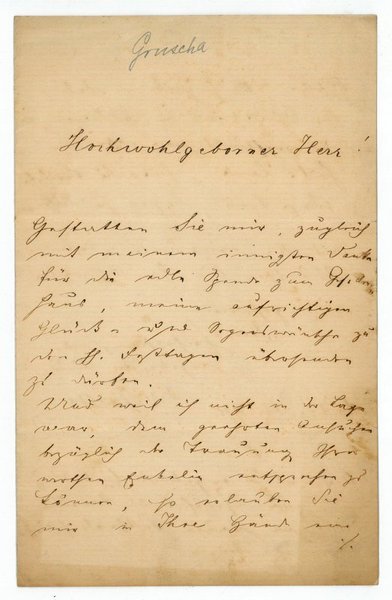 Gruscha
Hochwohlgeborner Herr!
Gestatten Sie mir, zugleich
mit meinem innigsten Danke
für die edle Spende zum
Haus, meine aufrichtigen
Glück- und Segenswünsche zu
den hh. Festtagen übersenden
zu dürfen.
Und weil ich nicht in der Lage
war, dem geehrten Ansuchen
bezüglich der Trauung Ihrer
werthen Enkelin entsprechen zu
können, so erlauben Sie
mir in Ihre Hände eine
./.